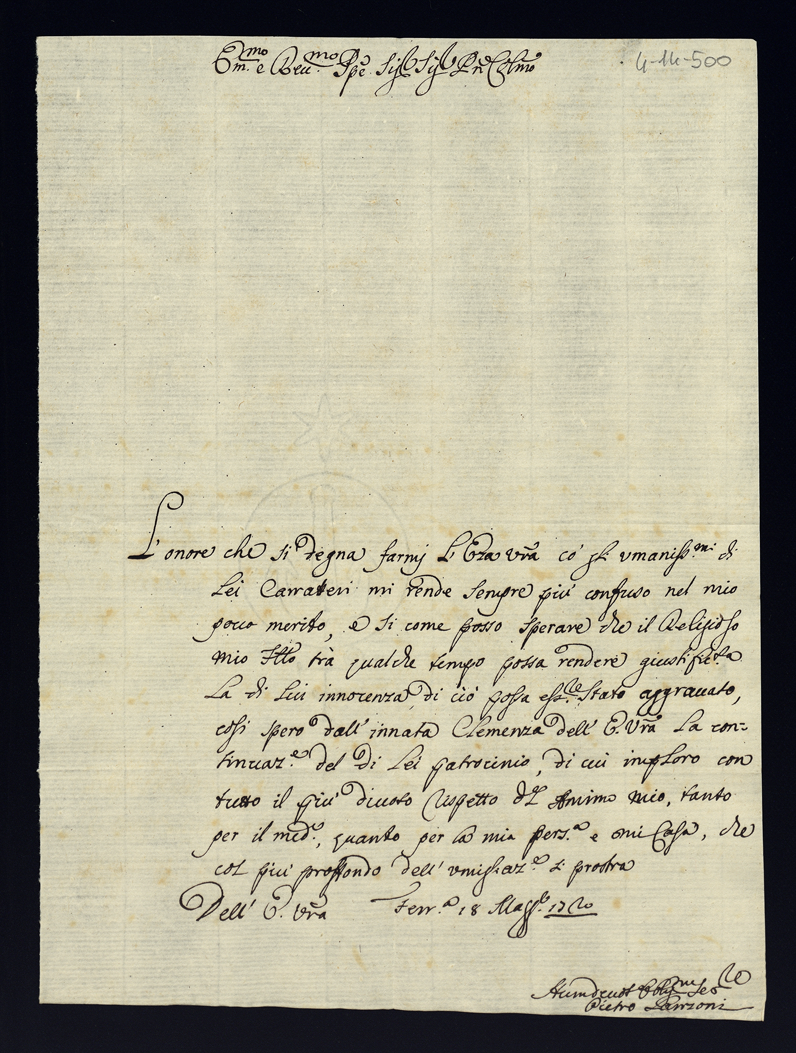 Em.mo e Rev.mo Pñe Sig.r Sig.r Pñe Colmo
4-14-500
L'onore che si degna farmi L'Eza Vrã co' suoi umaniss.mi di
Lei Caratteri mi rende sempre più confuso nel mio
poco merito, e si come posso sperare che il Religioso
mio Ftto trà qualche tempo possa rendere giustific.ta
La di Lui innocenza, di ciò possa ess.re Stato aggravato,
così spero dall'innata Clemenza dell'E. Vrã La con=
tinuaz.e del di Lei patrocinio, di cui imploro con
tutto il più divoto rispetto dell Animo mio, tanto
per il med.o, quanto per la mia pers.a e mi Casa, che
col più profondo dell'umiliaz.e si prostra
Dell'E. Vrã Ferr.a 18 Magg.o 1720
Humdevot Oblig.mo Ser.re
Pietro Lanzoni